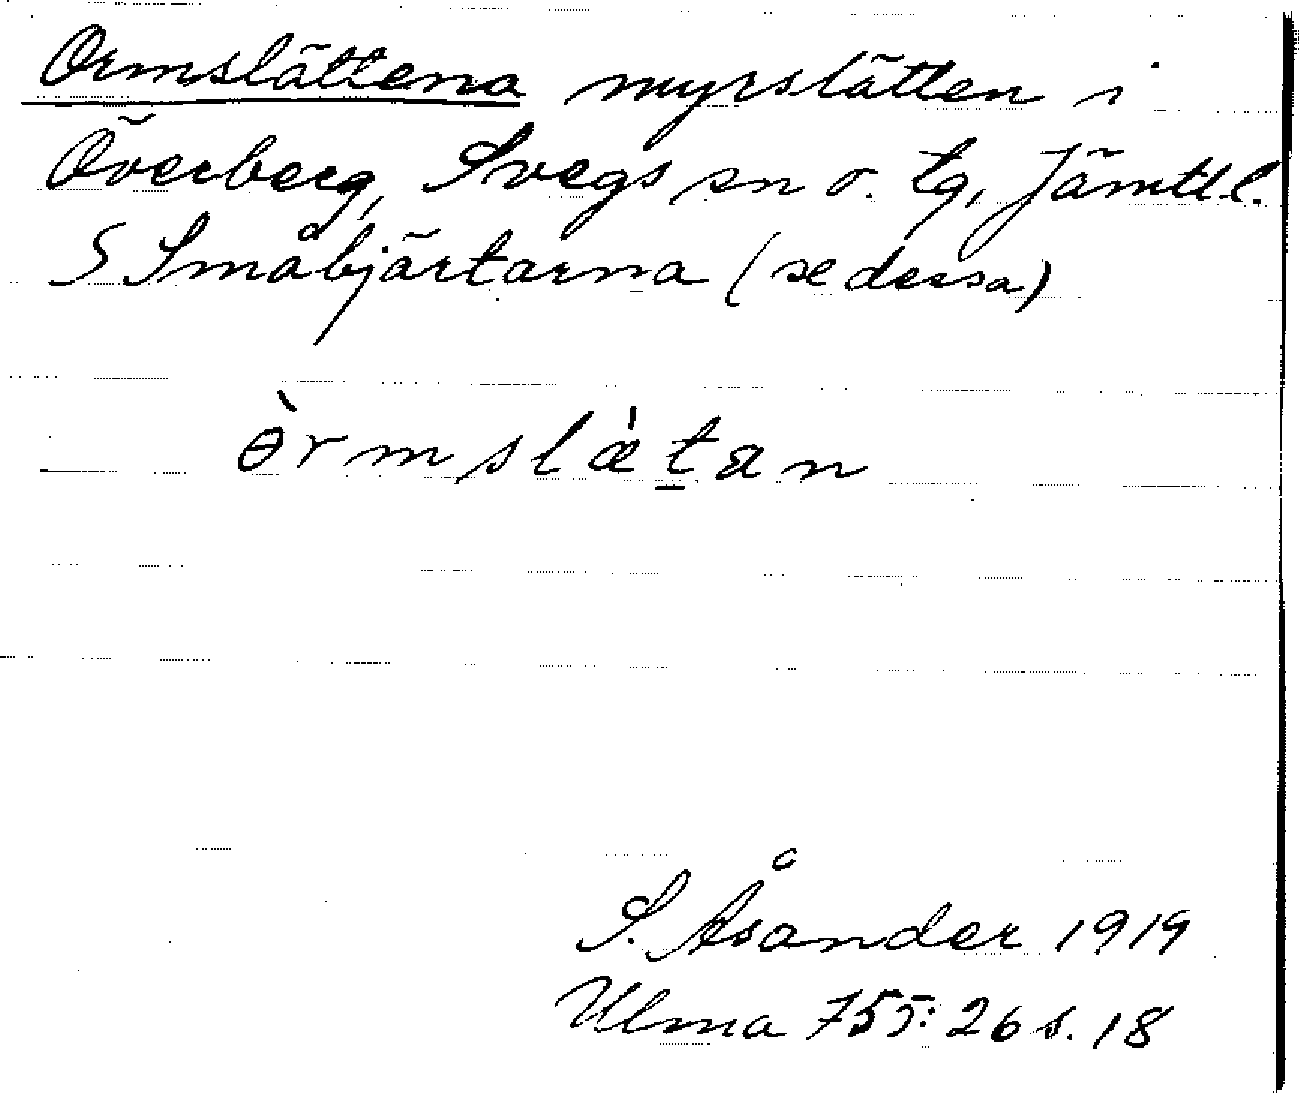 Ormslättena myrslätten i
Överberg, Svegs sn o. tg, Jämtl. l.
S Småbjärtarna (se dessa)
ɵ̀rmslæ̀t̠an
S. Åsander 1919
Ulma 755:26 s. 18